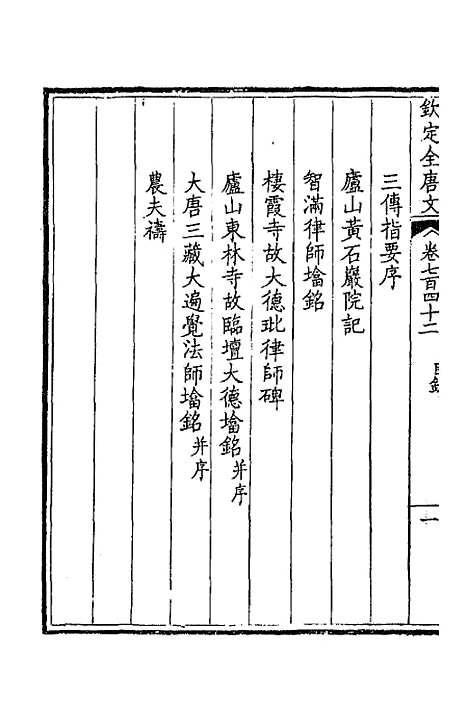 欽定全唐文 卷七百四十二 目錄 一
三傳指要序
廬山黃石巖院記
智滿律師墖銘
棲霞寺故大德玭律師碑
廬山東林寺故臨壇大德墖銘并序
大唐三藏大遍覺法師墖銘并序
農夫禱